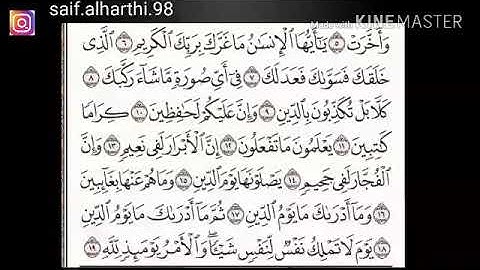 saif.alharthi.98
Made with KINEMASTER
وَأَخَّرَتْ ٥ يَٰٓأَيُّهَا ٱلْإِنسَٰنُ مَا غَرَّكَ بِرَبِّكَ ٱلْكَرِيمِ ٦ ٱلَّذِى
خَلَقَكَ فَسَوَّىٰكَ فَعَدَلَكَ ٧ فِىٓ أَىِّ صُورَةٍ مَّا شَآءَ رَكَّبَكَ ٨
كَلَّا بَلْ تُكَذِّبُونَ بِٱلدِّينِ ٩ وَإِنَّ عَلَيْكُمْ لَحَٰفِظِينَ ١٠ كِرَامًا
كَٰتِبِينَ ١١ يَعْلَمُونَ مَا تَفْعَلُونَ ١٢ إِنَّ ٱلْأَبْرَارَ لَفِى نَعِيمٍ ١٣ وَإِنَّ
ٱلْفُجَّارَ لَفِى جَحِيمٍ ١٤ يَصْلَوْنَهَا يَوْمَ ٱلدِّينِ ١٥ وَمَا هُمْ عَنْهَا بِغَآئِبِينَ
١٦ وَمَآ أَدْرَىٰكَ مَا يَوْمُ ٱلدِّينِ ١٧ ثُمَّ مَآ أَدْرَىٰكَ مَا يَوْمُ ٱلدِّينِ
١٨ يَوْمَ لَا تَمْلِكُ نَفْسٌ لِّنَفْسٍ شَيْـًٔا وَٱلْأَمْرُ يَوْمَئِذٍ لِّلَّهِ ١٩